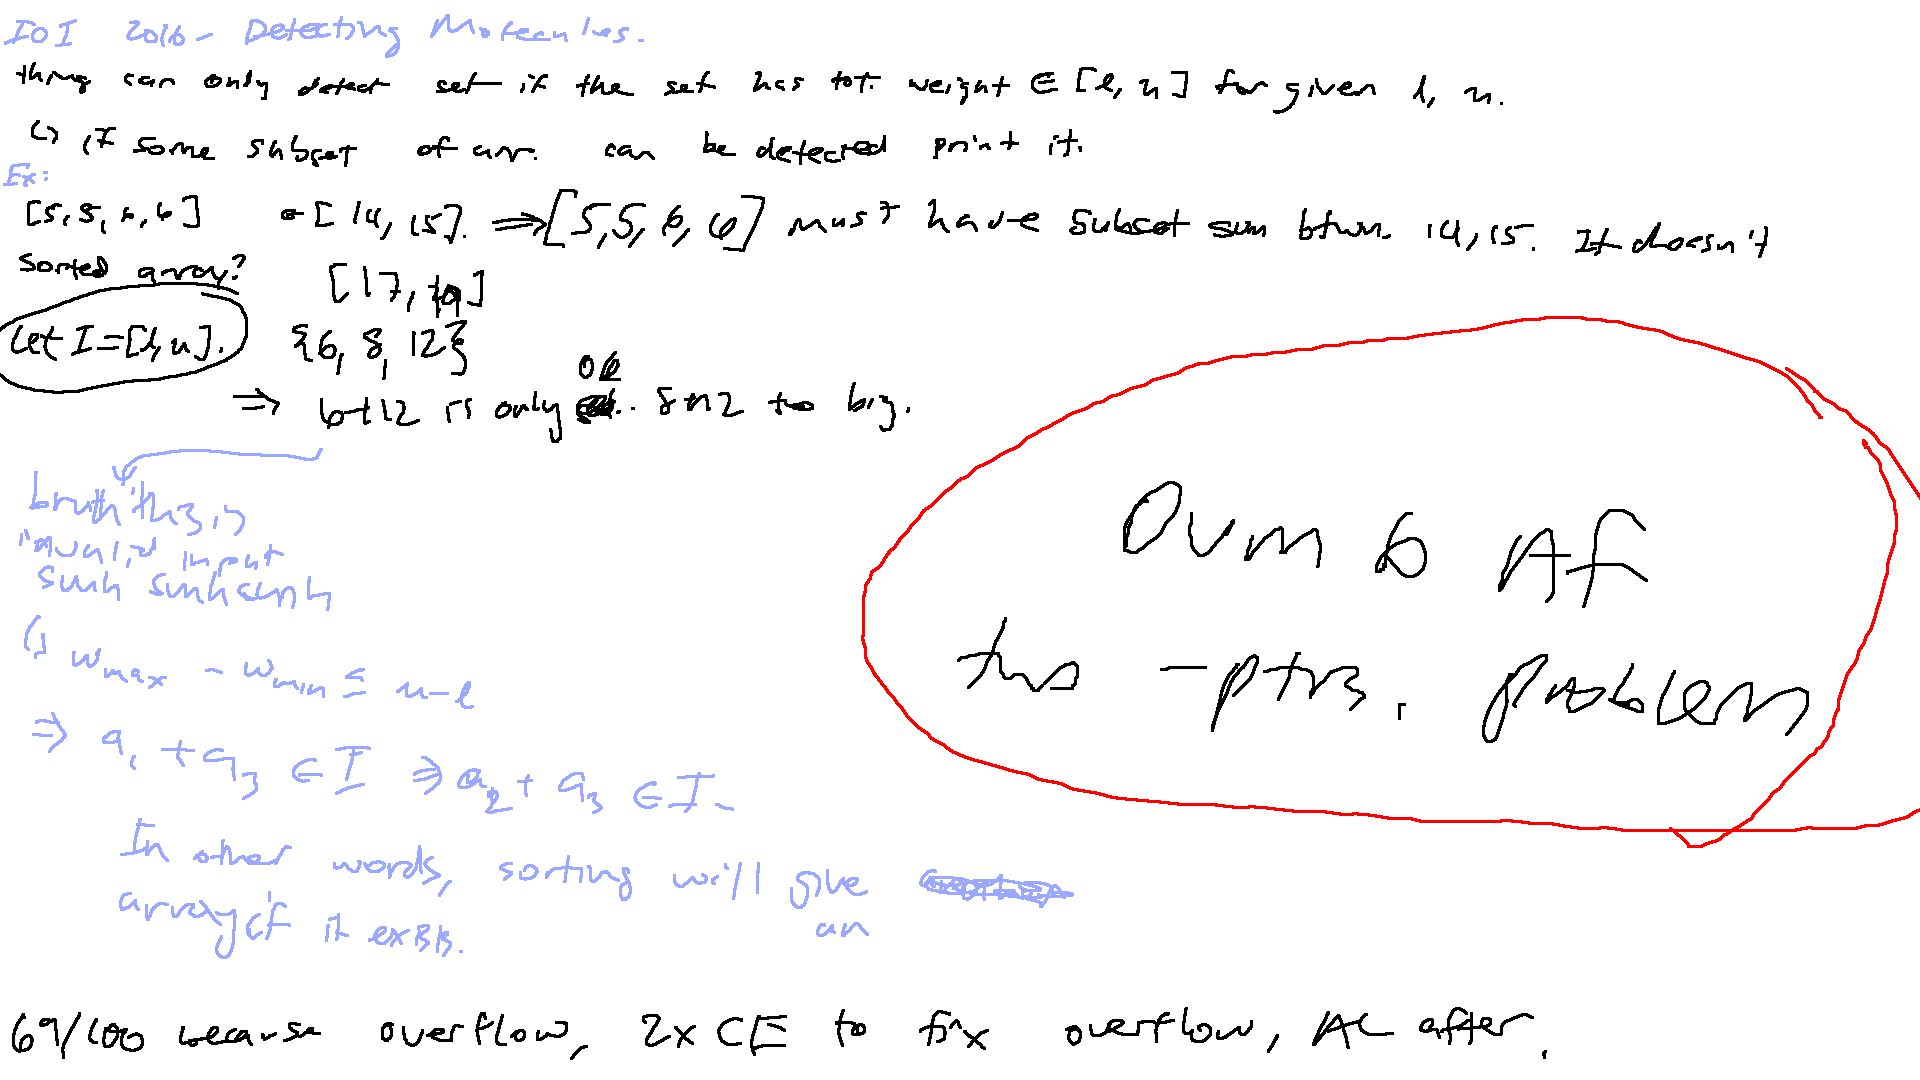 IOI 2016 - Detecting Molecules.
thing can only detect set if the set has tot. weight ∈ [l, u] for given l, u.
↳ if some subset of arr. can be detected print it.
Ex:
[5, 5, 6, 6] ∈ [14, 15]. ⇒ [5, 5, 6, 6] must have subset sum btwn. 14, 15. It doesn't
Sorted array?
[17, 19]
let I = [l, u].
{6, 8, 12}
ok
⇒ 6+12 is only 8+12 too big.
bruh this is
invalid input
smh smh smh
↳ w_max - w_min ≤ u-l
⇒ a_1 + a_3 ∈ I ⇒ a_2 + a_3 ∈ I.
In other words, sorting will give
an
array if it exists.
Dumb AF
two-ptrs. problem
69/100 because overflow, 2x CE to fix overflow, AC after.